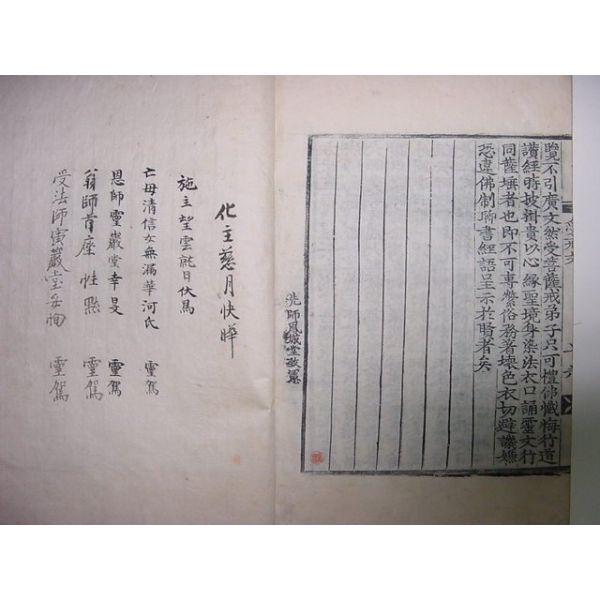 覽不引廣文然受菩薩戒弟子只可禮佛懺悔行道
讀經時披緝貴以心緣聖境身染法衣口誦靈文行
同薩埵者也即不可專縈俗務著壞色衣切避譏嫌
恐違佛制聊書經語呈示於賢者矣
化主慈月快曄
施主望雲
日伏爲
亡母淸信女無漏華河氏 靈駕
恩師靈巖堂幸旻 靈駕
翁師首座性
靈駕
受法師寅巖堂
靈駕